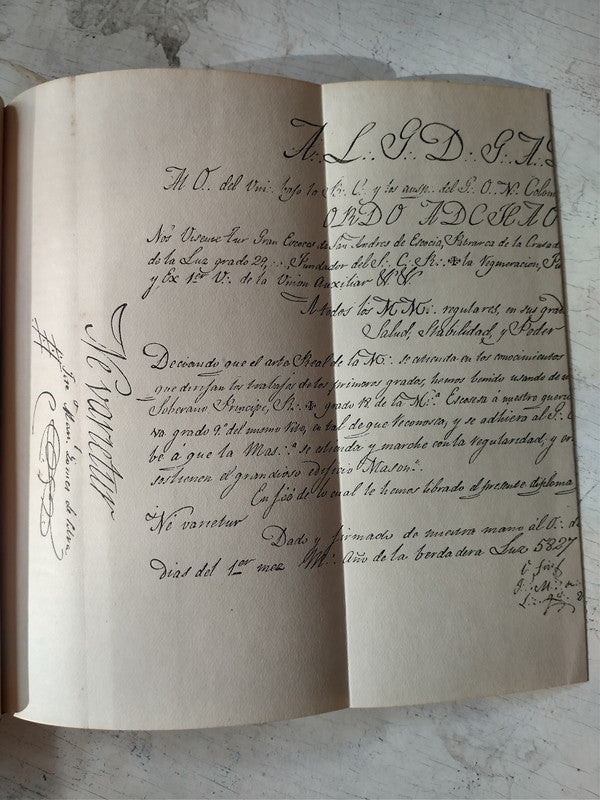 A∴ L∴ G∴ D∴ G∴ A
Al O. del Uni∴ bajo la B. C. y los ausp. del G. O. N. Colom
ORDO AD CHAO
Nos Viseme tur Gran Escoces de San Andres de Escocia, Jerarca de la Cruzad
de la Luz grado 29,∴, Fundador del S∴ C∴ R∴ ✠ la Vegneracion, P
y Ex 1er V∴ de la Union Auxiliar W. W.
A todos los M M∴ regulares, en sus grad
Salud, Stabilidad, y Poder
Deceando que el arte Real de la N∴ se estienda en los conocimientos
que dirijan los trabajos de los primeros grados, hemos benido usando de
Soberano Principe, R∴ ✠ grado 18 de la M.ª Escosesa á nuestro quer
va. grado 9.º del mismo Rito, en tal de que reconosca, y se adhiera al S∴
be a que la Mas∴ª se estienda y marche con la regularidad, y
sostienen el grandioso edificio Mason∴
En feé de lo cual le hemos librado el presente diploma
Ne varietur
Dado y firmado de nuestra mano al O∴ d
dias del 1er mes M∴ Año de la berdadera Luz 5827
J∴ M∴
Ne varietur